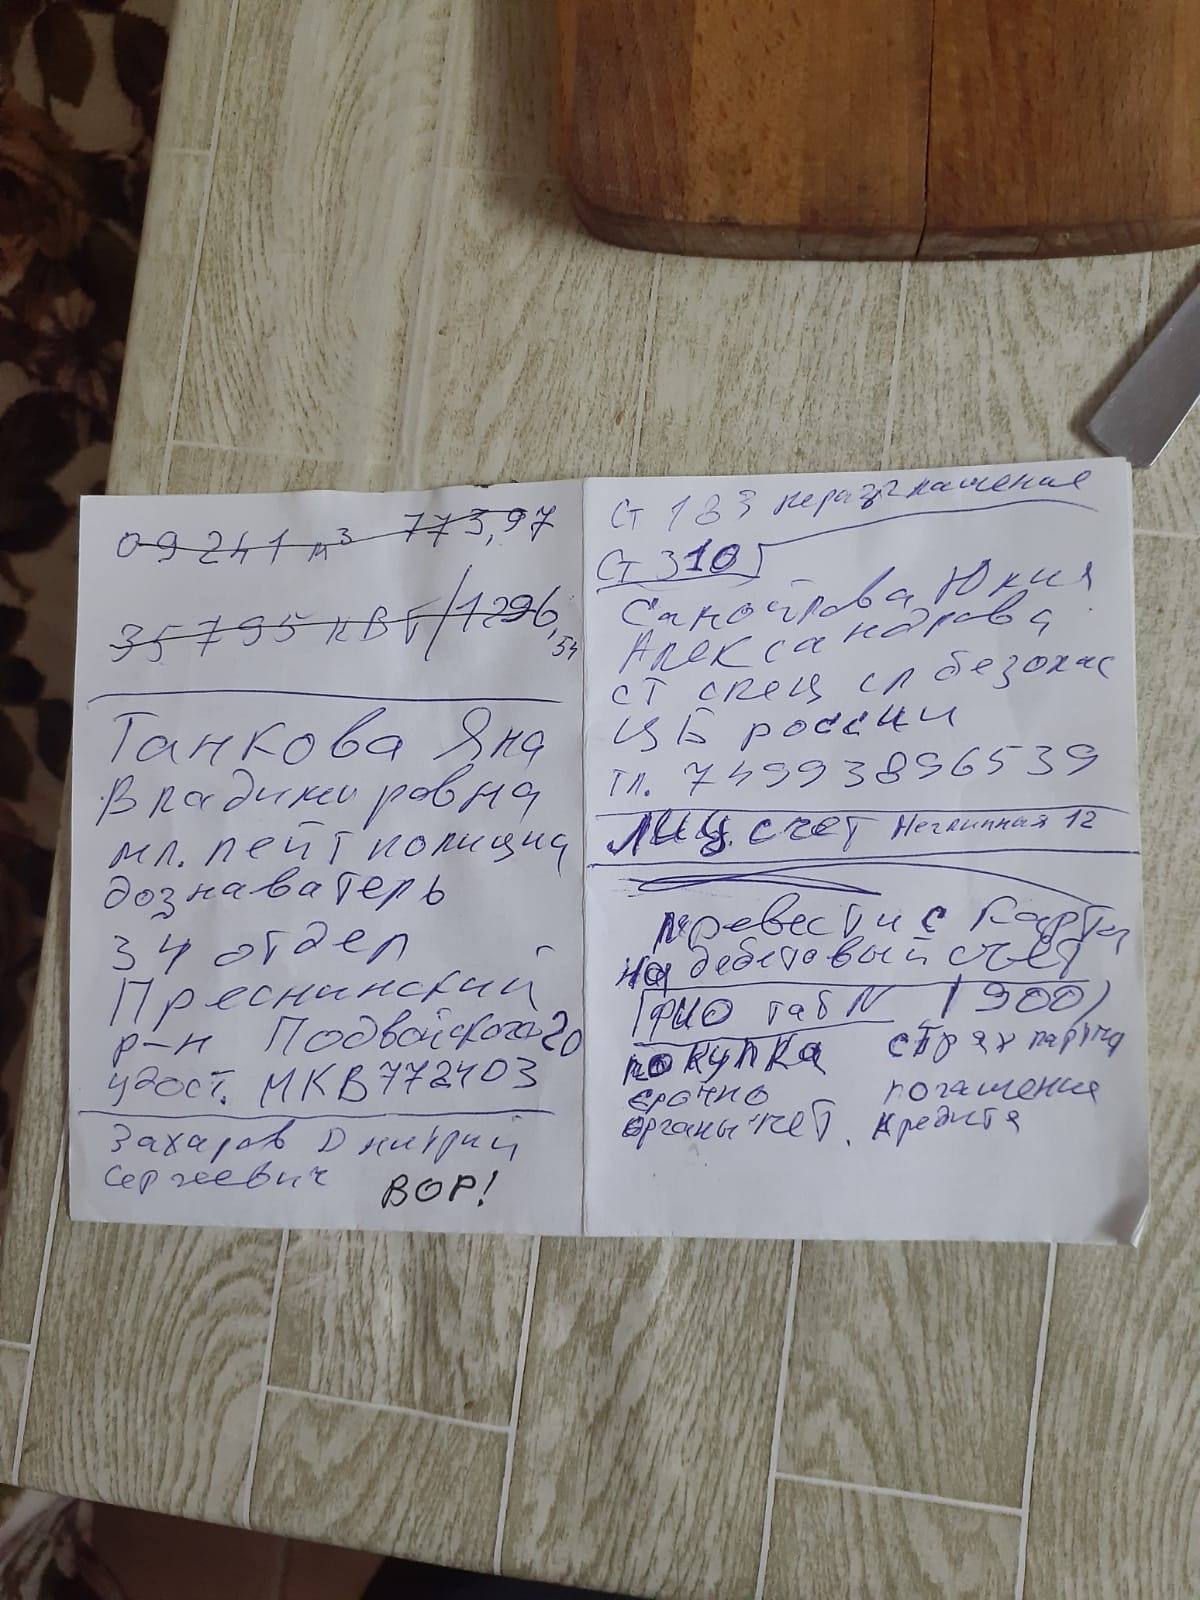 09241 м³ 773,97
35795 кВт/1296,54
Танкова Яна
Владимировна
мл. лейт полиции
дознаватель
34 отдел
Преснинский
р-н Подвойского 20
удост. МКВ772403
Захаров Дмитрий
Сергеевич ВОР!
Ст 183 неразглашение
Ст 310
Самойлова Юлия
Александрова
ст спец сл безопас
ЦБ россии
тл. 74993896539
Лиц. счет Неглинная 12
перевести с карты
на дебетовый счет
(ФИО таб N 1900)
покупка страх
срочно погашение
кредита